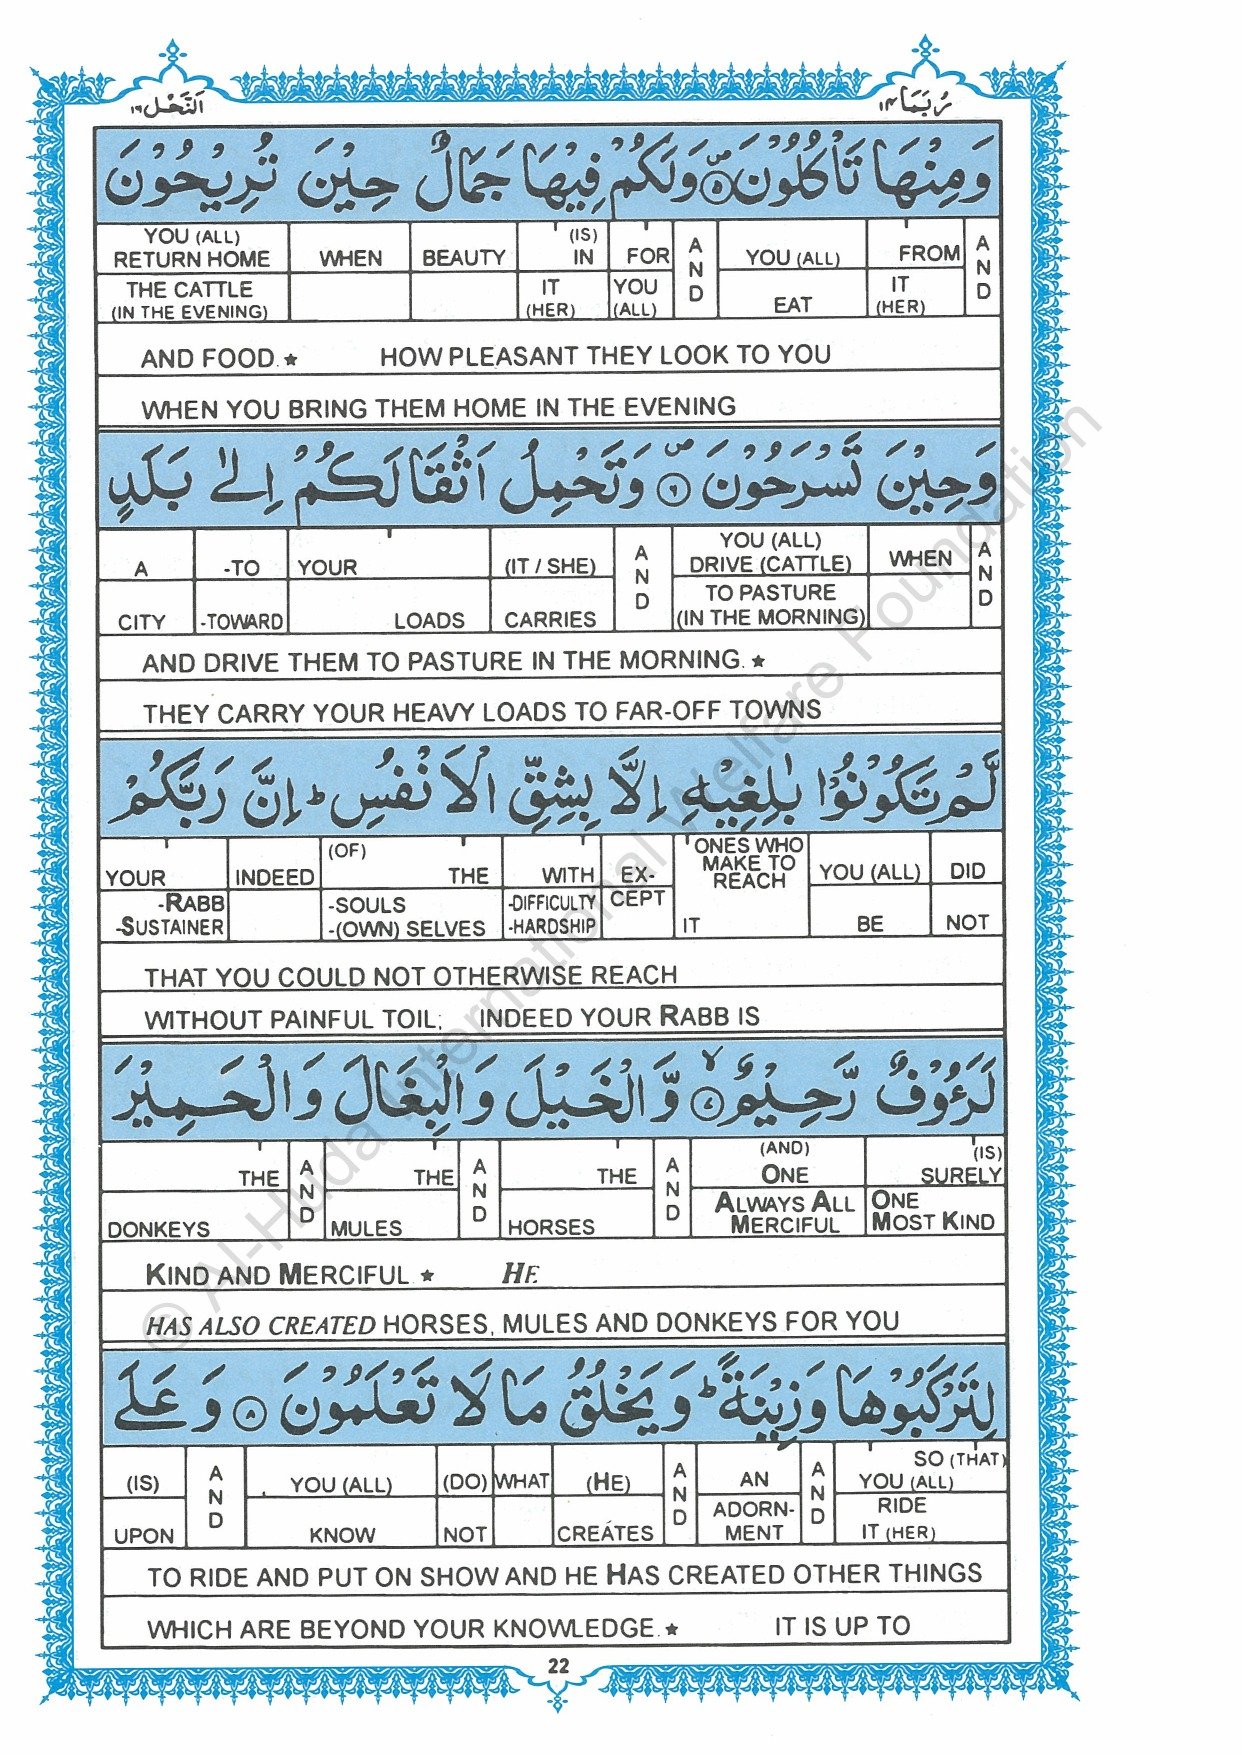 اَلنَّحْل ١٦
رُبَمَا ١٤
وَ مِنْهَا تَاْكُلُوْنَ ۪ ۵ وَلَكُمْ فِيْهَا جَمَالٌ حِيْنَ تُرِيْحُوْنَ
YOU (ALL) RETURN HOME WHEN BEAUTY (IS) IN FOR AND YOU (ALL) FROM AND
THE CATTLE (IN THE EVENING) IT (HER) YOU (ALL) EAT IT (HER)
AND FOOD.★ HOW PLEASANT THEY LOOK TO YOU
WHEN YOU BRING THEM HOME IN THE EVENING
وَحِيْنَ تَسْرَحُوْنَ ۪ ٦ وَتَحْمِلُ اَثْقَالَكُمْ اِلٰى بَلَدٍ
A -TO YOUR (IT / SHE) AND YOU (ALL) DRIVE (CATTLE) WHEN AND
CITY -TOWARD LOADS CARRIES TO PASTURE (IN THE MORNING)
AND DRIVE THEM TO PASTURE IN THE MORNING.★
THEY CARRY YOUR HEAVY LOADS TO FAR-OFF TOWNS
لَّمْ تَكُوْنُوْا بٰلِغِيْهِ اِلَّا بِشِقِّ الْاَنْفُسِ ؕ اِنَّ رَبَّكُمْ
YOUR INDEED (OF) THE WITH EX- ONES WHO MAKE TO REACH YOU (ALL) DID
-RABB -SUSTAINER -SOULS -(OWN) SELVES -DIFFICULTY -HARDSHIP CEPT IT BE NOT
THAT YOU COULD NOT OTHERWISE REACH
WITHOUT PAINFUL TOIL; INDEED YOUR RABB IS
لَرَءُوْفٌ رَّحِيْمٌ ۙ ٧ وَّالْخَيْلَ وَالْبِغَالَ وَالْحَمِيْرَ
THE AND THE AND THE AND (AND) ONE (IS) SURELY
DONKEYS MULES HORSES ALWAYS ALL MERCIFUL ONE MOST KIND
KIND AND MERCIFUL.★ HE
HAS ALSO CREATED HORSES, MULES AND DONKEYS FOR YOU
لِتَرْكَبُوْهَا وَزِيْنَةً ؕ وَيَخْلُقُ مَا لَا تَعْلَمُوْنَ ٨ وَعَلَى
(IS) AND YOU (ALL) (DO) WHAT (HE) AND AN AND SO (THAT) YOU (ALL)
UPON KNOW NOT CREATES ADORN- MENT RIDE IT (HER)
TO RIDE AND PUT ON SHOW AND HE HAS CREATED OTHER THINGS
WHICH ARE BEYOND YOUR KNOWLEDGE.★ IT IS UP TO
22
© Al-Huda International Welfare Foundation